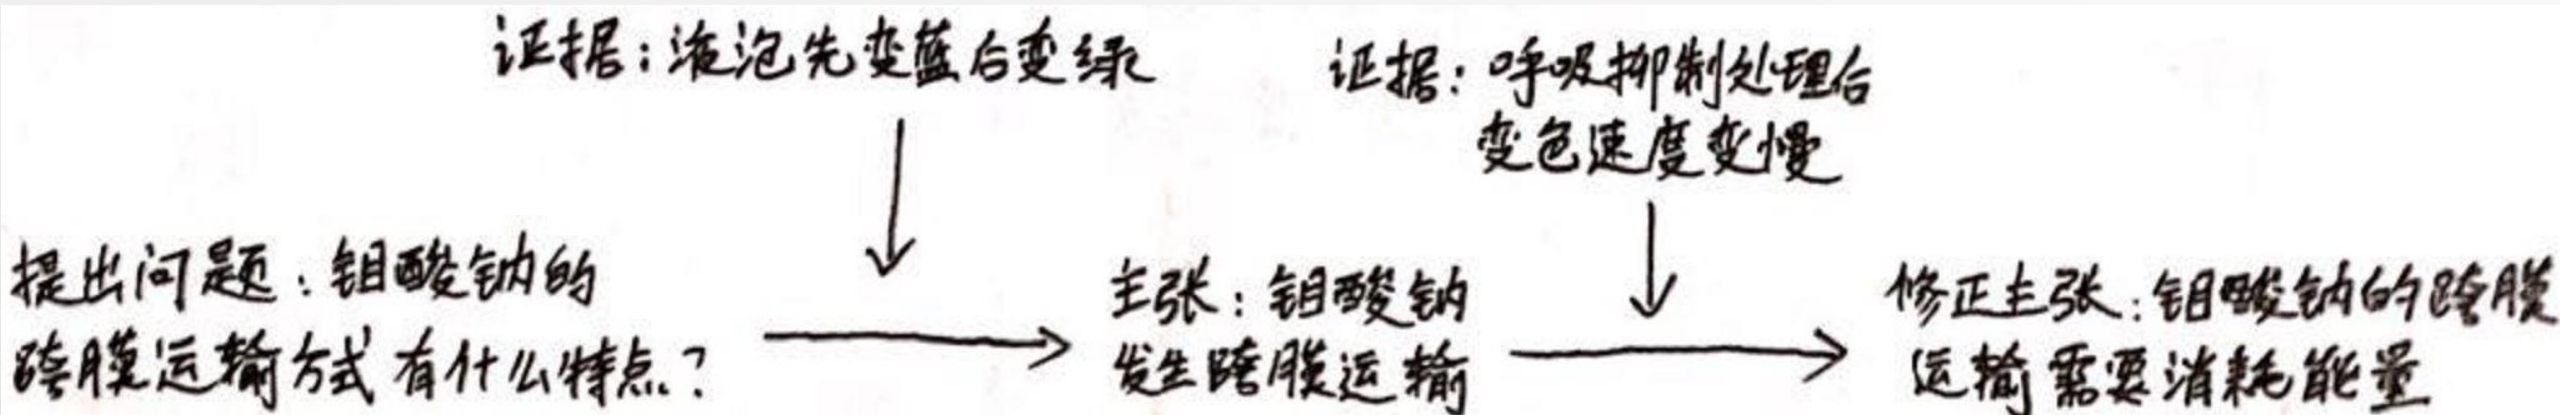 证据：液泡先变蓝后变绿
证据：呼吸抑制处理后
变色速度变慢
提出问题：钼酸钠的
跨膜运输方式有什么特点？
主张：钼酸钠
发生跨膜运输
修正主张：钼酸钠的跨膜
运输需要消耗能量